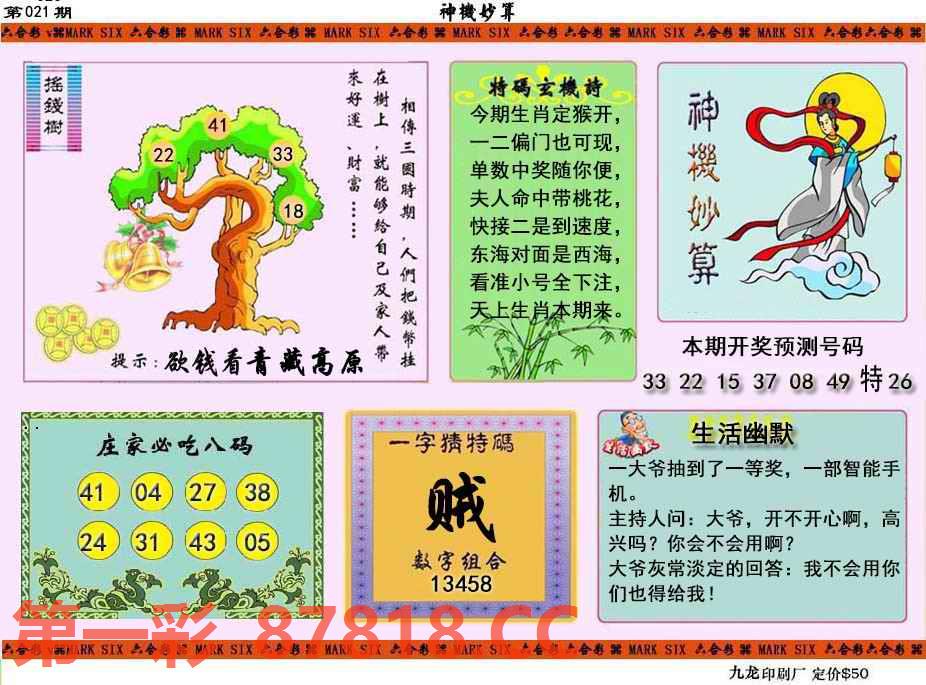 第021期
神機妙算
六合彩 MARK SIX 六合彩 MARK SIX 六合彩 MARK SIX 六合彩 MARK SIX 六合彩 MARK SIX 六合彩 MARK SIX 六合彩 MARK SIX 六合彩
搖錢樹
相傳三國時期，人們把錢幣挂
在樹上，就能够给自己及家人帶
來好運、財富……
41
22
33
18
提示：欲钱看青藏高原
特碼玄機詩
今期生肖定猴开，
一二偏门也可现，
单数中奖随你便，
夫人命中带桃花，
快接二是到速度，
东海对面是西海，
看准小号全下注，
天上生肖本期来。
神機妙算
本期开奖预测号码
33 22 15 37 08 49 特 26
庄家必吃八码
41 04 27 38
24 31 43 05
一字猜特碼
贼
数字组合
13458
生活幽默
生活幽默
一大爷抽到了一等奖，一部智能手
机。
主持人问：大爷，开不开心啊，高
兴吗？你会不会用啊？
大爷灰常淡定的回答：我不会用你
们也得给我！
第一彩 87818.CC
六合彩 MARK SIX 六合彩 MARK SIX 六合彩 MARK SIX 六合彩 MARK SIX 六合彩 MARK SIX 六合彩 MARK SIX 六合彩 MARK SIX 六合彩
九龙印刷厂 定价$50